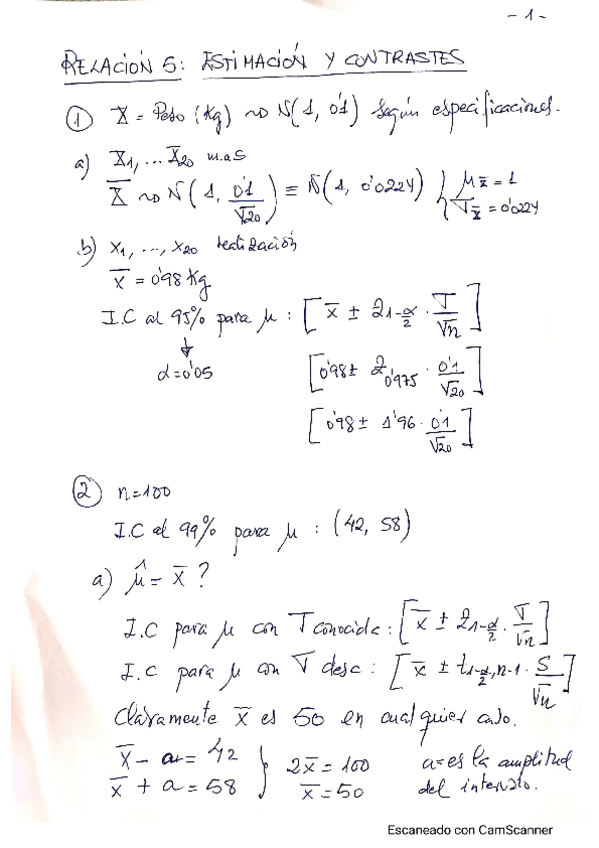 - 1 -
RELACIÓN 5: ESTIMACIÓN Y CONTRASTES
① X = Peso (Kg) ~> N(1, 0'1) según especificaciones.
a) X₁, ... X₂₀ m.a.s
X̅ ~> N(1, 0'1/√20) ≡ N(1, 0'0224) } μ_x̅ = 1
σ_x̅ = 0'0224
b) x₁, ..., x₂₀ realización
x̅ = 0'98 Kg
I.C al 95% para μ : [x̅ ± z_{1-α/2} · σ/√n]
↓
α = 0'05 [0'98 ± z_{0'975} · 0'1/√20]
[0'98 ± 1'96 · 0'1/√20]
② n = 100
I.C al 99% para μ : (42, 58)
a) μ̂ = x̅ ?
I.C para μ con σ conocida : [x̅ ± z_{1-α/2} · σ/√n]
I.C para μ con σ desc : [x̅ ± t_{1-α/2, n-1} · S/√n]
Claramente x̅ es 50 en cualquier caso.
x̅ - a = 42 } 2x̅ = 100 a = es la amplitud
x̅ + a = 58 x̅ = 50 del intervalo.
Escaneado con CamScanner